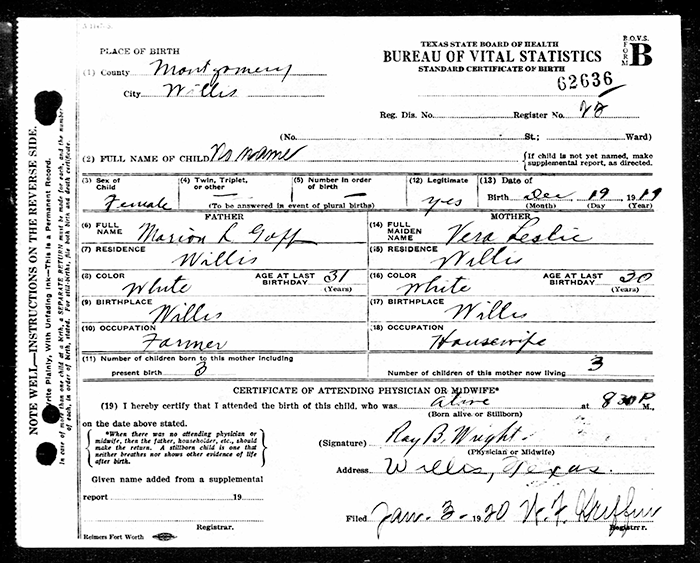 TEXAS STATE BOARD OF HEALTH
BUREAU OF VITAL STATISTICS
STANDARD CERTIFICATE OF BIRTH
B.O.V.S.
FORM B
62636
PLACE OF BIRTH
(1) County Montgomery
City Willis
Reg. Dis. No. Register No.
(No. St.; Ward)
(2) FULL NAME OF CHILD No name
{If child is not yet named, make supplemental report, as directed.
(3) Sex of Child Female
(4) Twin, Triplet, or other —
(5) Number in order of birth —
(To be answered in event of plural births)
(12) Legitimate yes
(13) Date of Birth Dec 19 1919
(Month) (Day) (Year)
FATHER
(6) FULL NAME Marion L Goff
(7) RESIDENCE Willis
(8) COLOR White AGE AT LAST BIRTHDAY 31 (Years)
(9) BIRTHPLACE Willis
(10) OCCUPATION Farmer
MOTHER
(14) FULL MAIDEN NAME Vera Leslie
(15) RESIDENCE Willis
(16) COLOR White AGE AT LAST BIRTHDAY 30 (Years)
(17) BIRTHPLACE Willis
(18) OCCUPATION Housewife
(11) Number of children born to this mother including present birth 3
Number of children of this mother now living 3
CERTIFICATE OF ATTENDING PHYSICIAN OR MIDWIFE*
(19) I hereby certify that I attended the birth of this child, who was alive at 830 P M.,
(Born alive or Stillborn)
on the date above stated.
*When there was no attending physician or
midwife, then the father, householder, etc., should
make the return. A stillborn child is one that
neither breathes nor shows other evidence of life
after birth.
(Signature) Ray B. Wright
(Physician or Midwife)
Address Willis, Texas.
Given name added from a supplemental
report 19
Registrar.
Filed Jan. 3. 1920 Griffin
Registrar.
Reimers Fort Worth
NOTE WELL—INSTRUCTIONS ON THE REVERSE SIDE.
Write Plainly, With Unfading Ink—This is a Permanent Record.
In case of more than one child at a birth, a SEPARATE RETURN must be made for each, and the number
of each, in order of birth, stated.